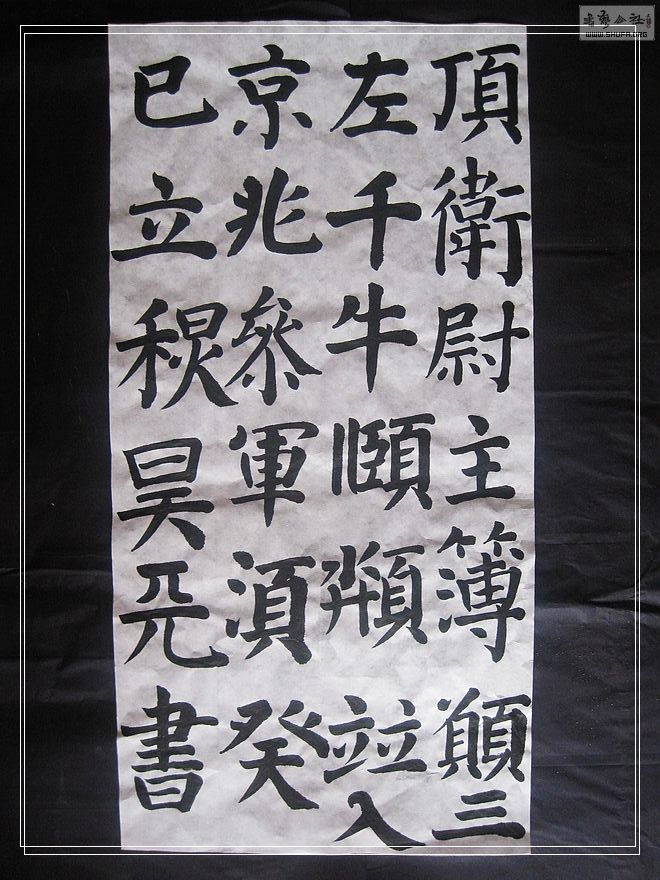 頂衛尉主簿顛三
左千牛頤竝入
京兆參軍須癸
巳立秋昊元書
書藝公社
WWW.SHUFA.ORG